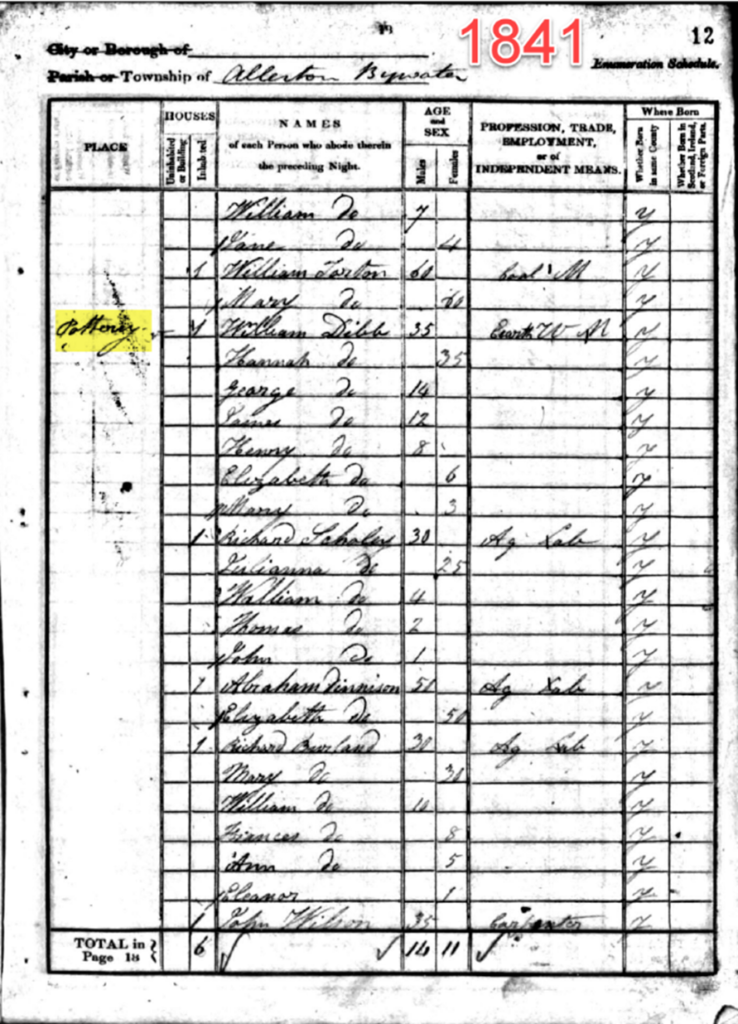 1841
12
City or Borough of
Enumeration Schedule.
Parish or Township of Allerton Bywater
PLACE
HOUSES
Uninhabited or Building
Inhabited
NAMES
of each Person who abode therein
the preceding Night.
AGE
and
SEX
Males
Females
PROFESSION, TRADE,
EMPLOYMENT,
or of
INDEPENDENT MEANS.
Where Born
Whether Born in same County
Whether Born in Scotland, Ireland, or Foreign Parts.
William do 7 y
Jane do 4 y
1 William Torton 60 Coal M y
Mary do 60 y
Pottery 1 William Dibb 35 Earth W M y
Hannah do 35 y
George do 14 y
James do 12 y
Henry do 8 y
Elizabeth do 6 y
Mary do 3 y
1 Richard Scholey 30 Ag Lab y
Julianna do 25 y
William do 4 y
Thomas do 2 y
John do 1 y
1 Abraham Dinnison 50 Ag Lab y
Elizabeth do 50 y
1 Richard Burland 30 Ag Lab y
Mary do 30 y
William do 10 y
Frances do 8 y
Ann do 5 y
Eleanor 1 y
1 John Wilson 35 Carpenter y
TOTAL in
Page 18 6 14 11